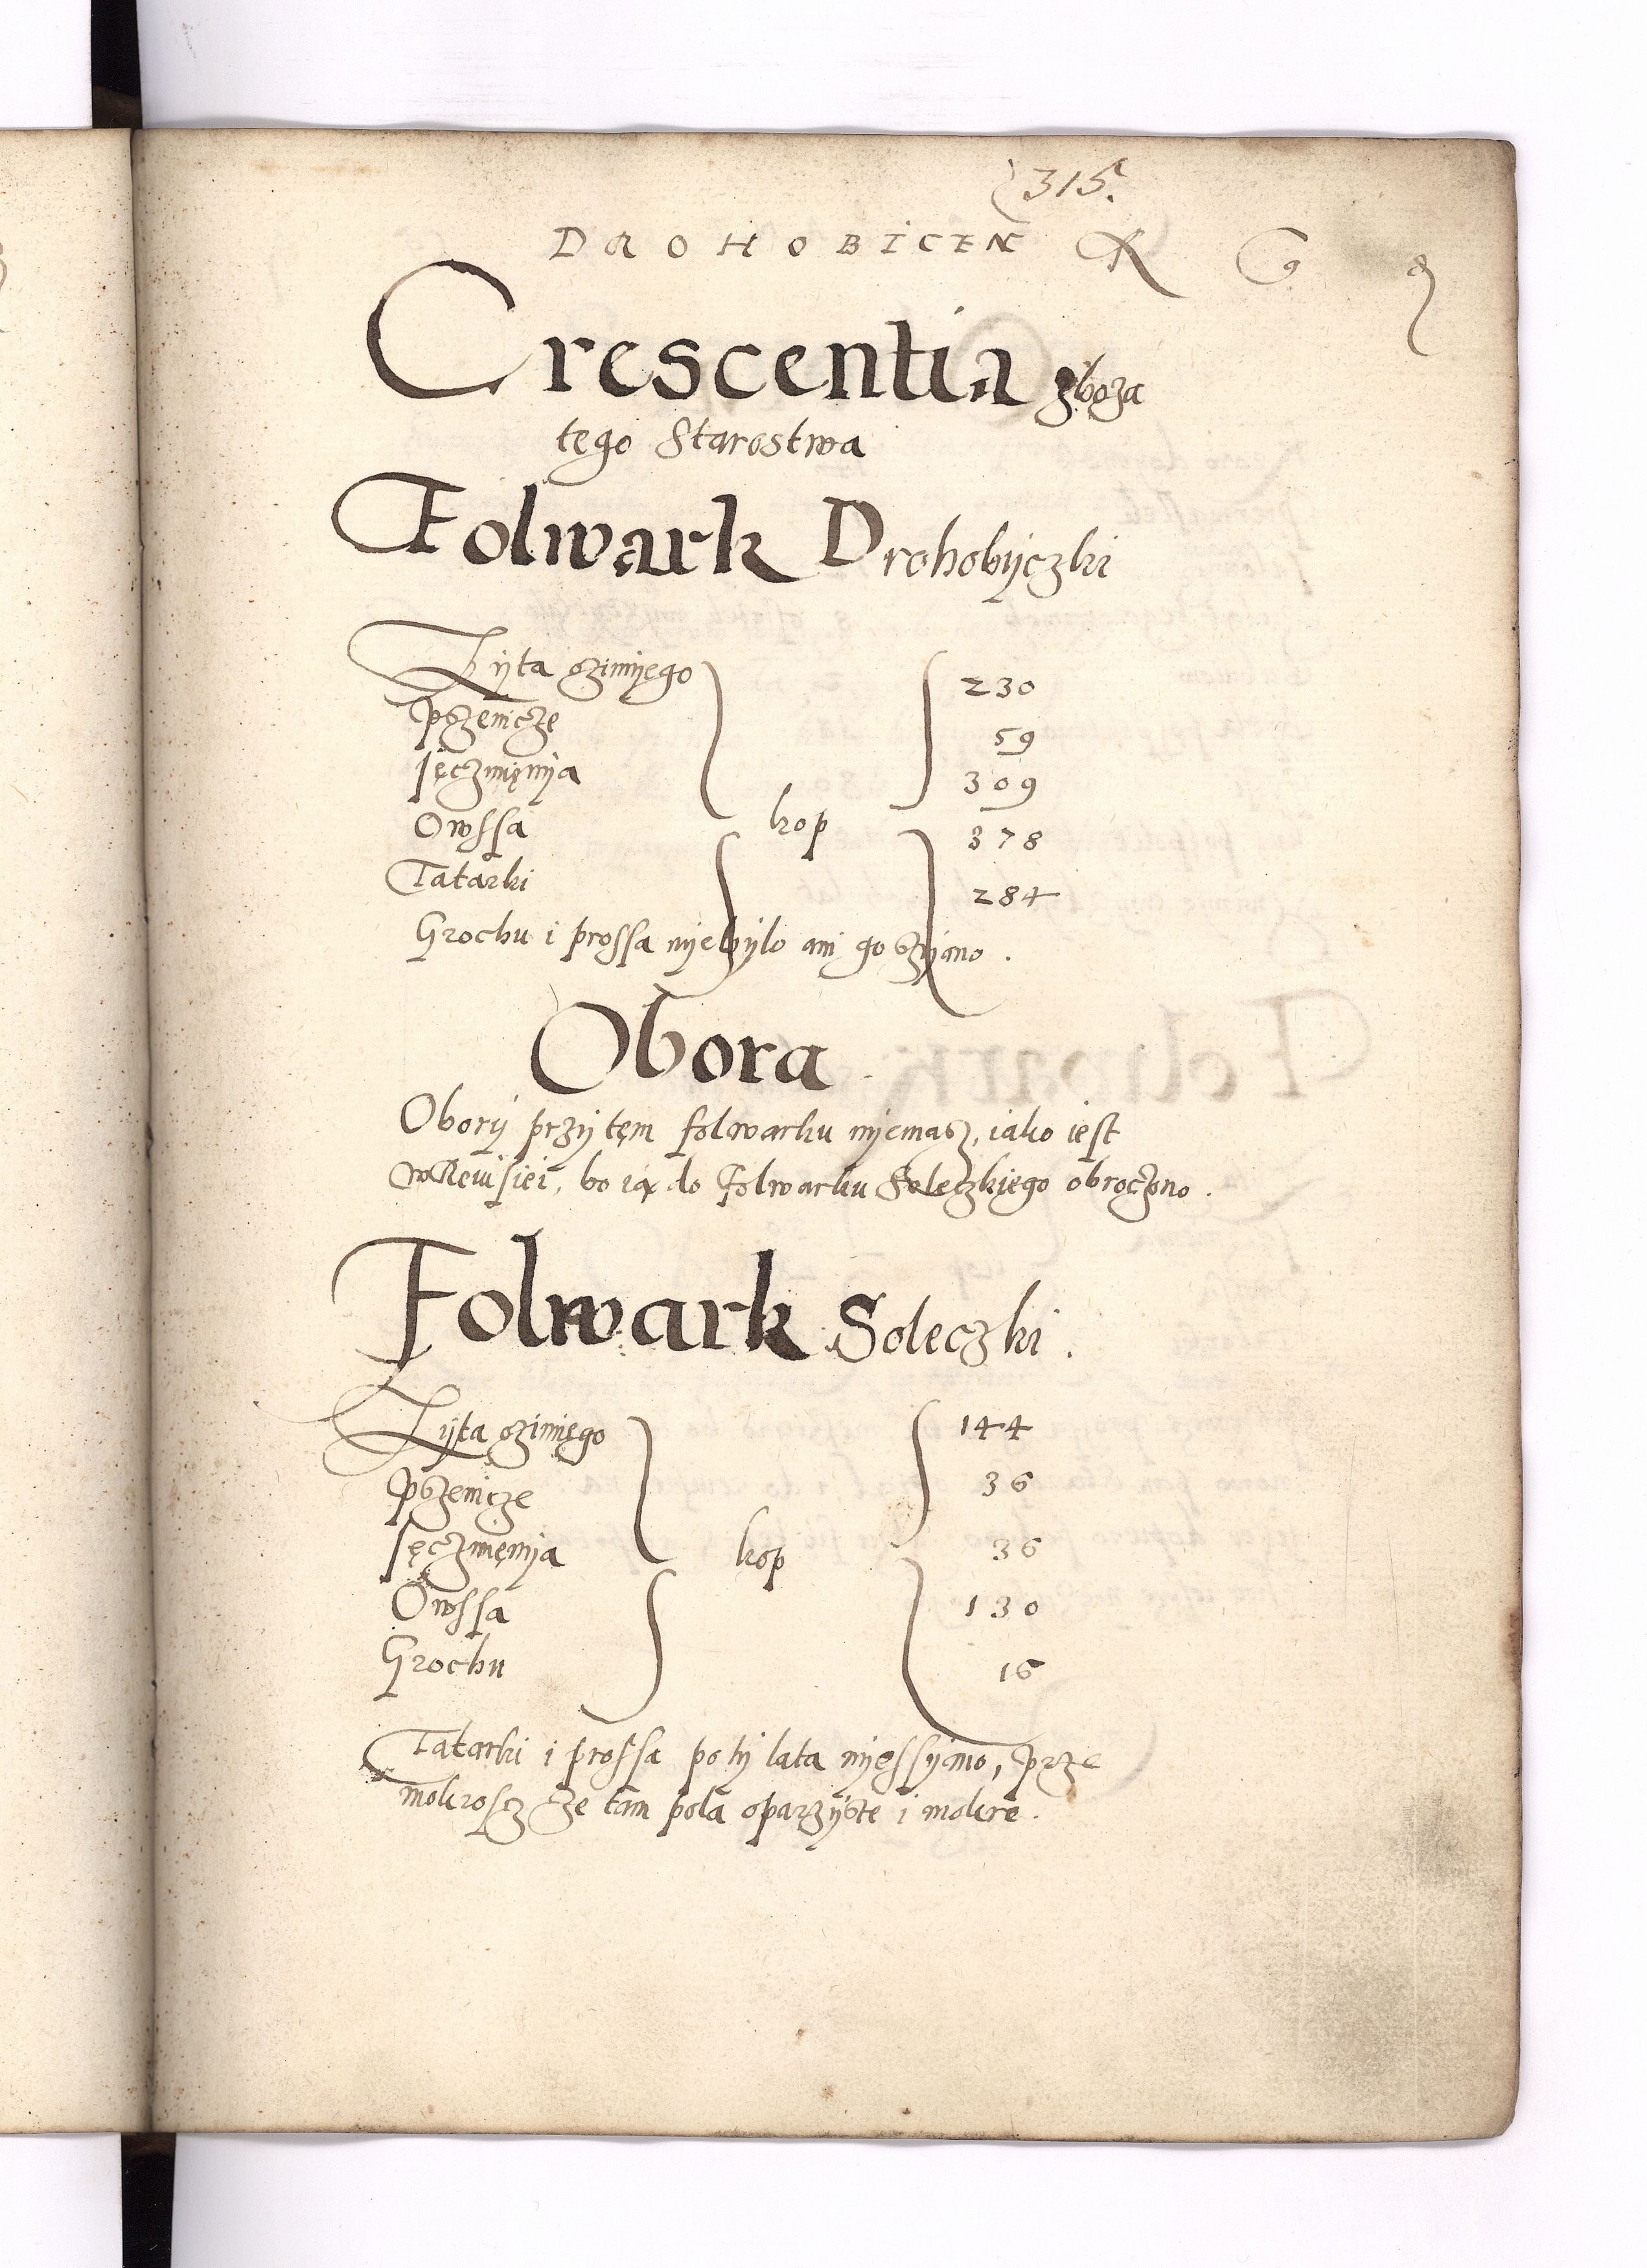 315.
DROHOBICEN R G
Crescentia zboza
tego Starostwa
Folwark Drohobyczki
Zyta ozimyego 230
Pszenicze 59
Jęczmięnya 309
Owssa kop 378
Tatarki 284
Grochu i prossa nyebylo ani go szyano.
Obora
Obory przy tęm folwarku nyemasz, iako iest
w Revisiei, bo ią do Folwarku Soleczkiego obroczono.
Folwark Soleczki.
Zyta ozimięgo 144
Pszenicze 36
Jęczmięnya 36
Owssa kop 130
Grochu 16
Tatarki i prossa po ty lata nyessyano, prze
mokroscz że tam pola oparzyste i mokre.